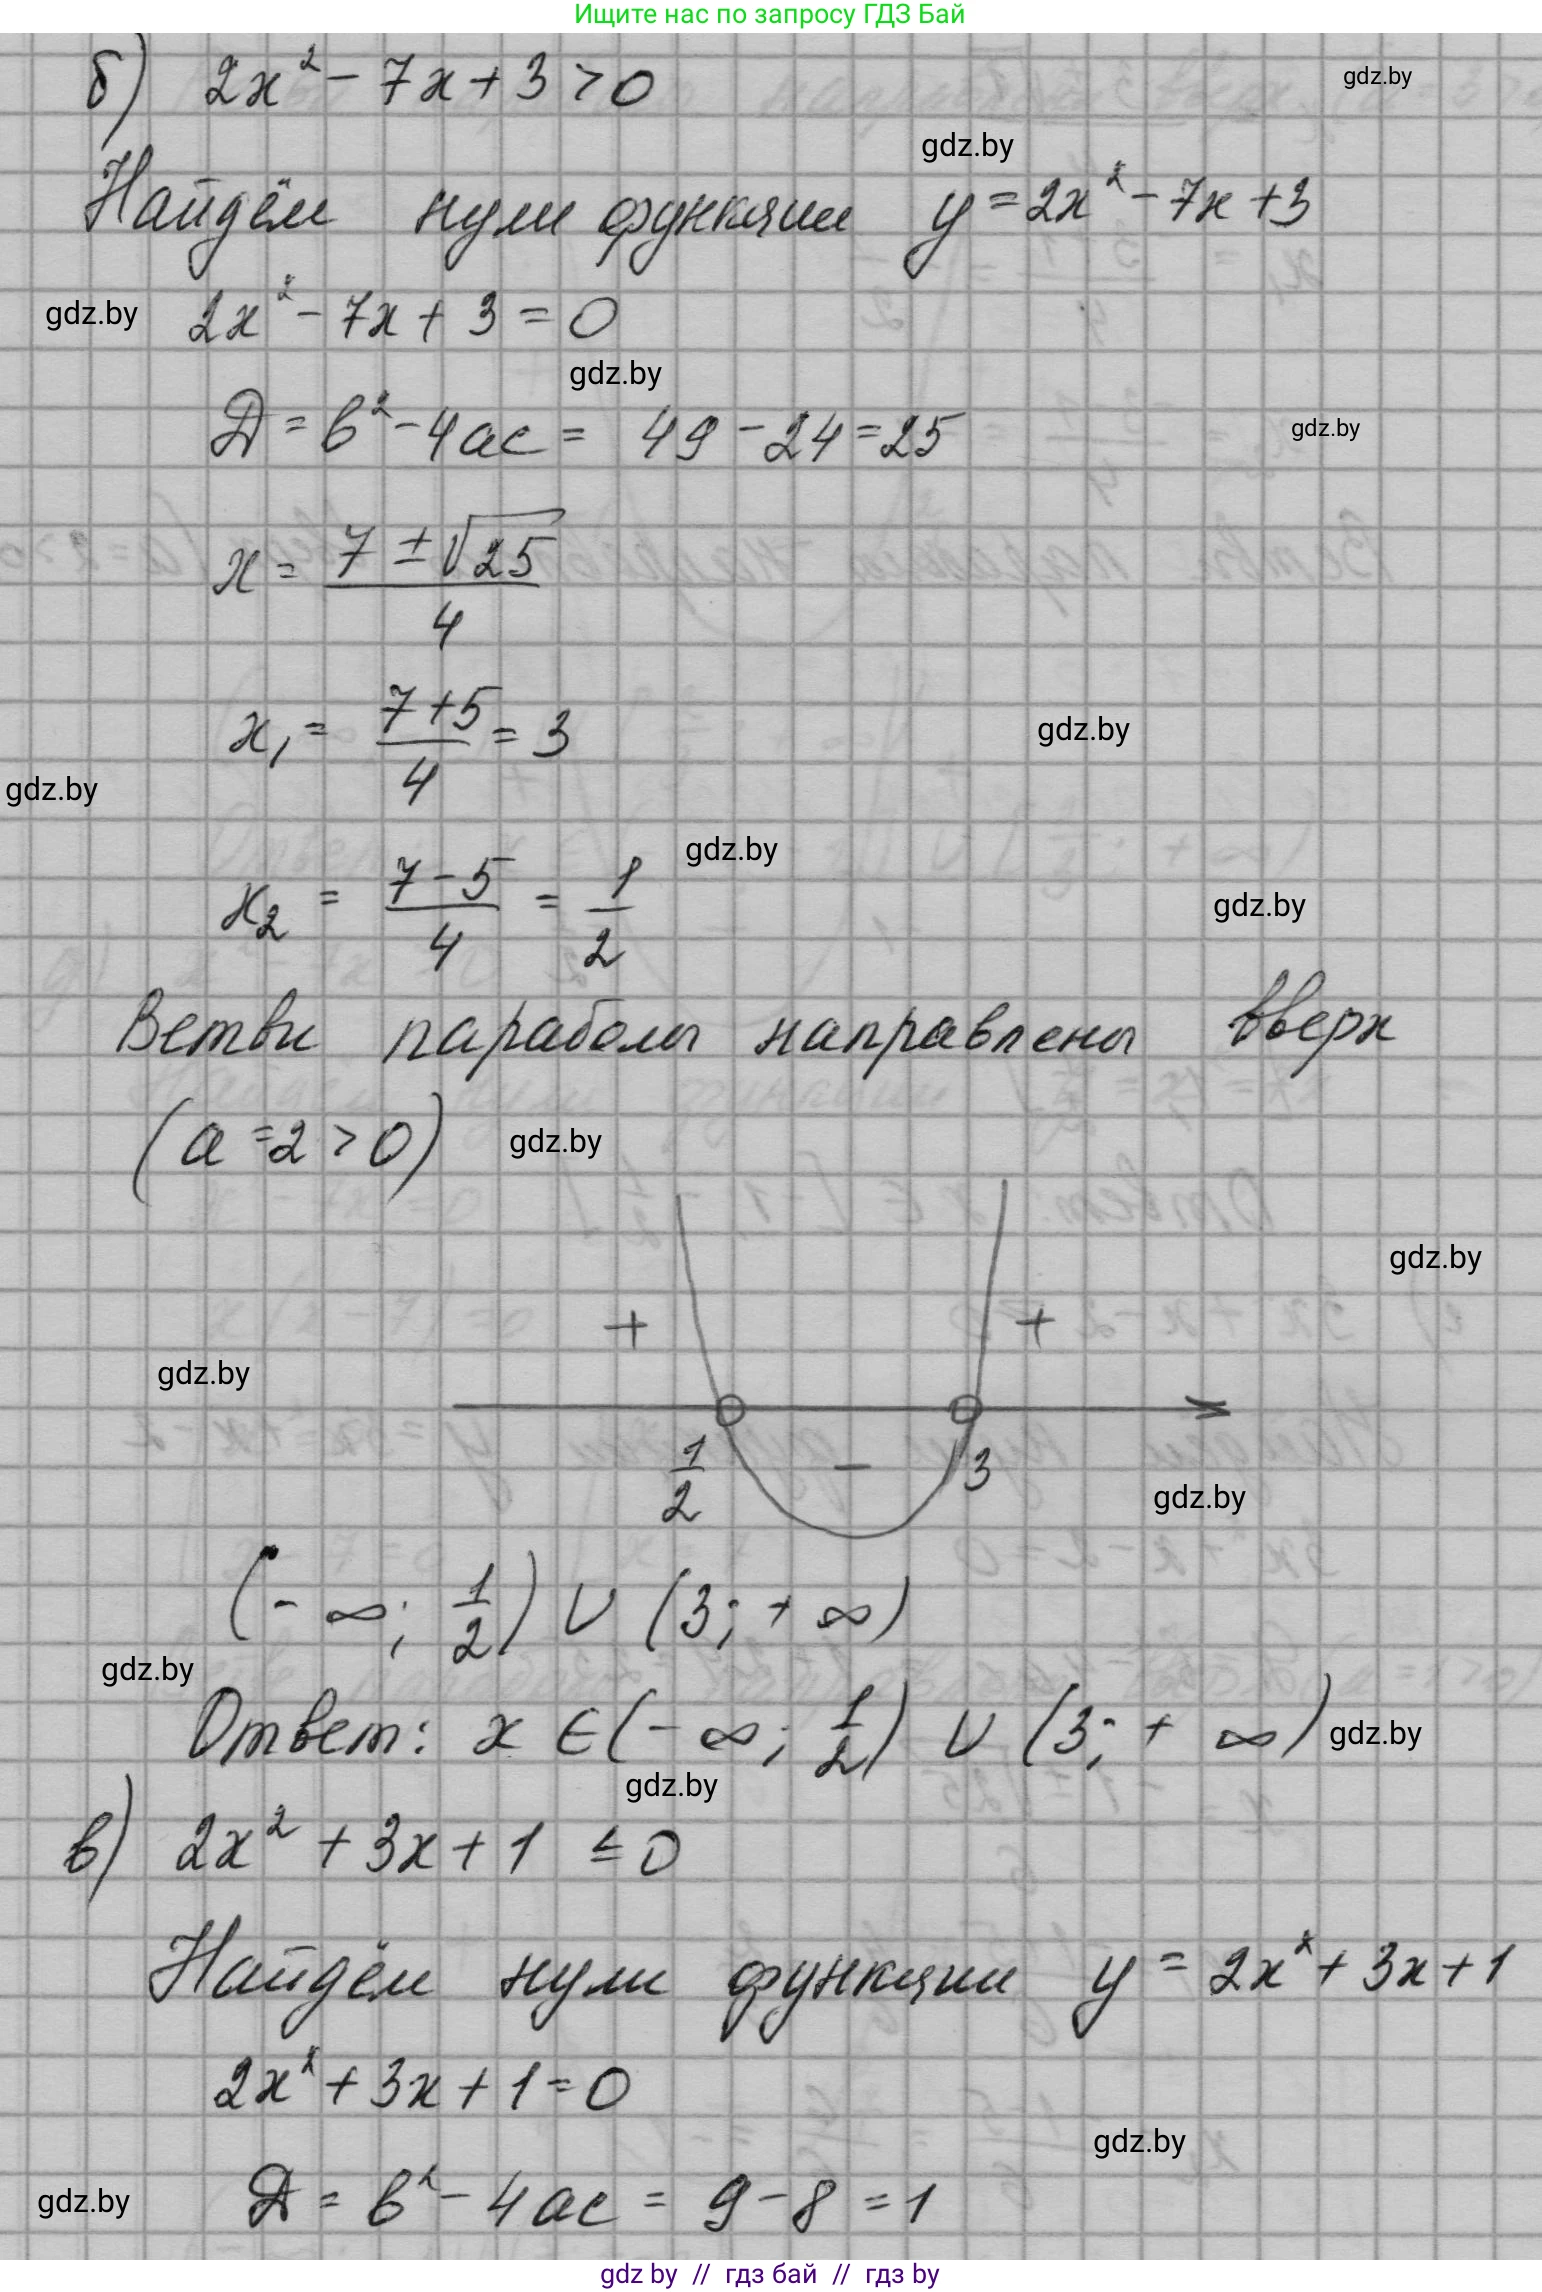 Ищите нас по запросу ГДЗ Бай
б) 2x² - 7x + 3 > 0
gdz.by
gdz.by
Найдём нули функции y = 2x² - 7x + 3
gdz.by
2x² - 7x + 3 = 0
gdz.by
D = b² - 4ac = 49 - 24 = 25
gdz.by
x = (7 ± √25)/4
x₁ = (7+5)/4 = 3
gdz.by
gdz.by
x₂ = (7-5)/4 = 1/2
gdz.by
gdz.by
Ветви параболы направлены вверх
(a = 2 > 0)
gdz.by
gdz.by
+ +
gdz.by
1/2 - 3
gdz.by
(-∞; 1/2) ∪ (3; +∞)
gdz.by
Ответ: x ∈ (-∞; 1/2) ∪ (3; +∞)
gdz.by
gdz.by
в) 2x² + 3x + 1 ≤ 0
Найдём нули функции y = 2x² + 3x + 1
2x² + 3x + 1 = 0
gdz.by
gdz.by
D = b² - 4ac = 9 - 8 = 1
gdz by // гдз бай // гдз by